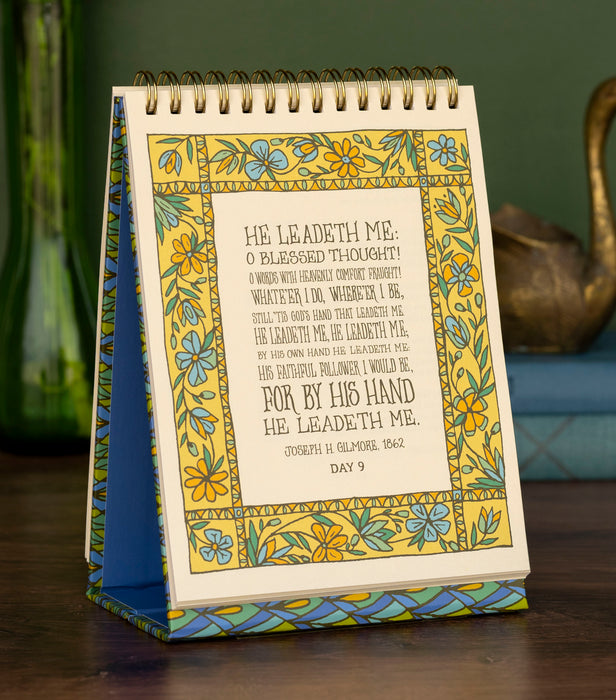 HE LEADETH ME:
O BLESSED THOUGHT!
O WORDS WITH HEAVENLY COMFORT FRAUGHT!
WHATE'ER I DO, WHERE'ER I BE,
STILL 'TIS GOD'S HAND THAT LEADETH ME.
HE LEADETH ME, HE LEADETH ME;
BY HIS OWN HAND HE LEADETH ME:
HIS FAITHFUL FOLLOWER I WOULD BE,
FOR BY HIS HAND
HE LEADETH ME.
JOSEPH H. GILMORE, 1862
DAY 9